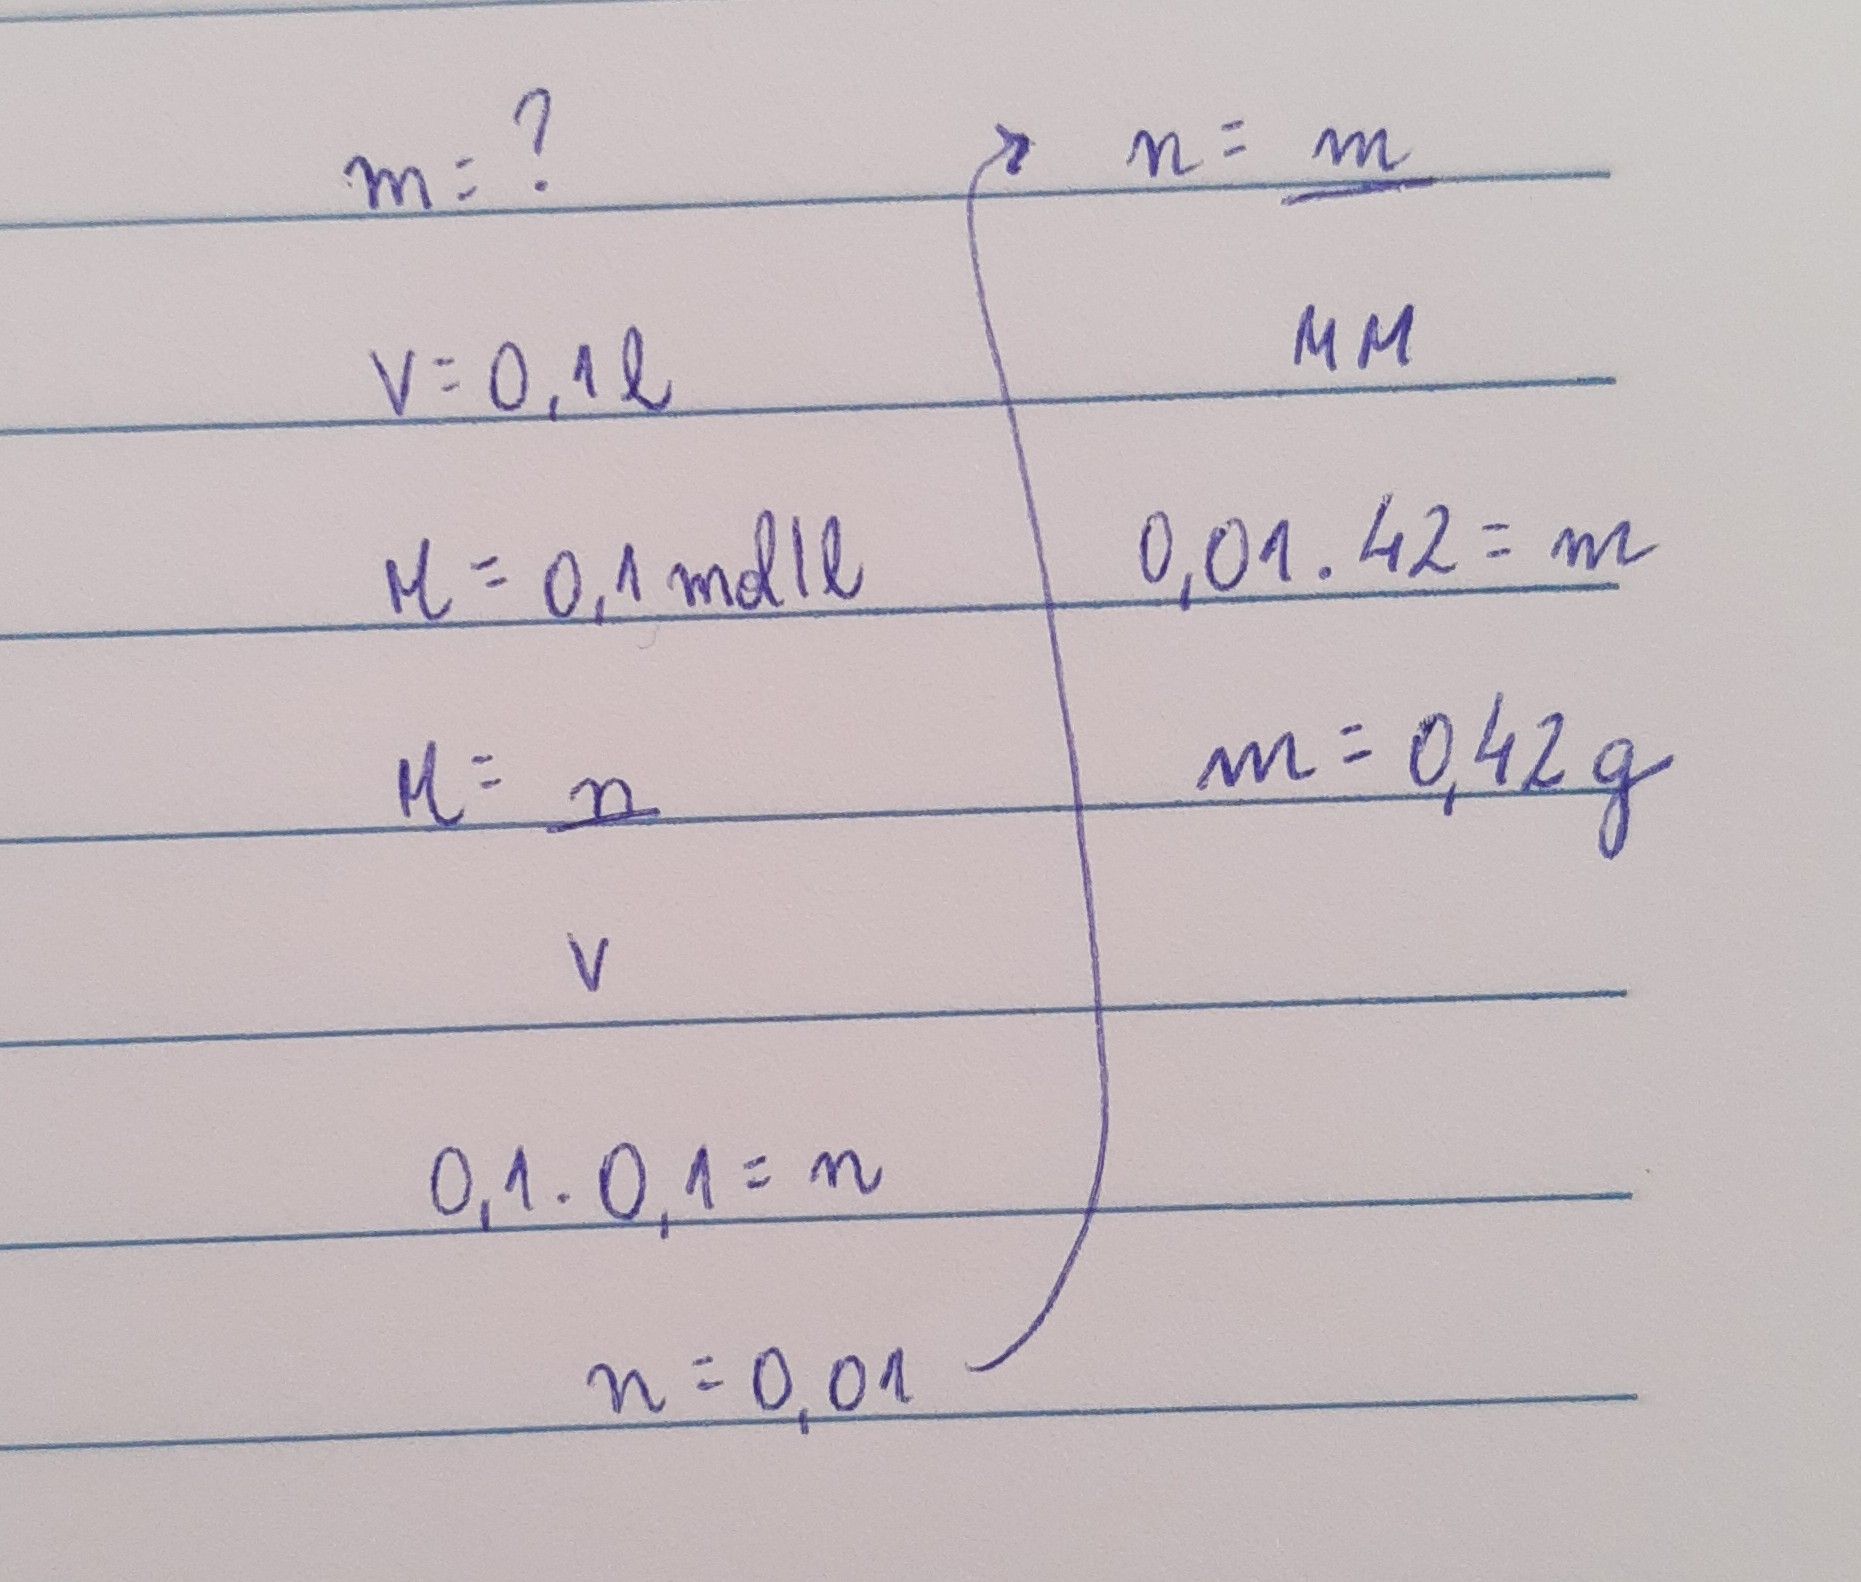 m = ?
V = 0,1 l
M = 0,1 mol/l
M = n
V
0,1 . 0,1 = n
n = 0,01
n = m
MM
0,01 . 42 = m
m = 0,42 g